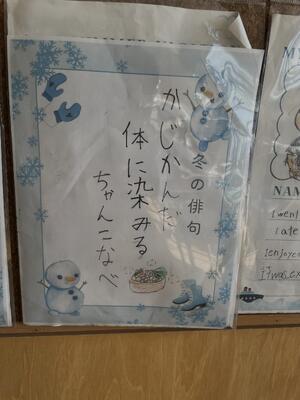 冬の俳句
かじかんだ
体に染みる
ちゃんこなべ
NAM
I wen
I ate
I enjoye
It was ex